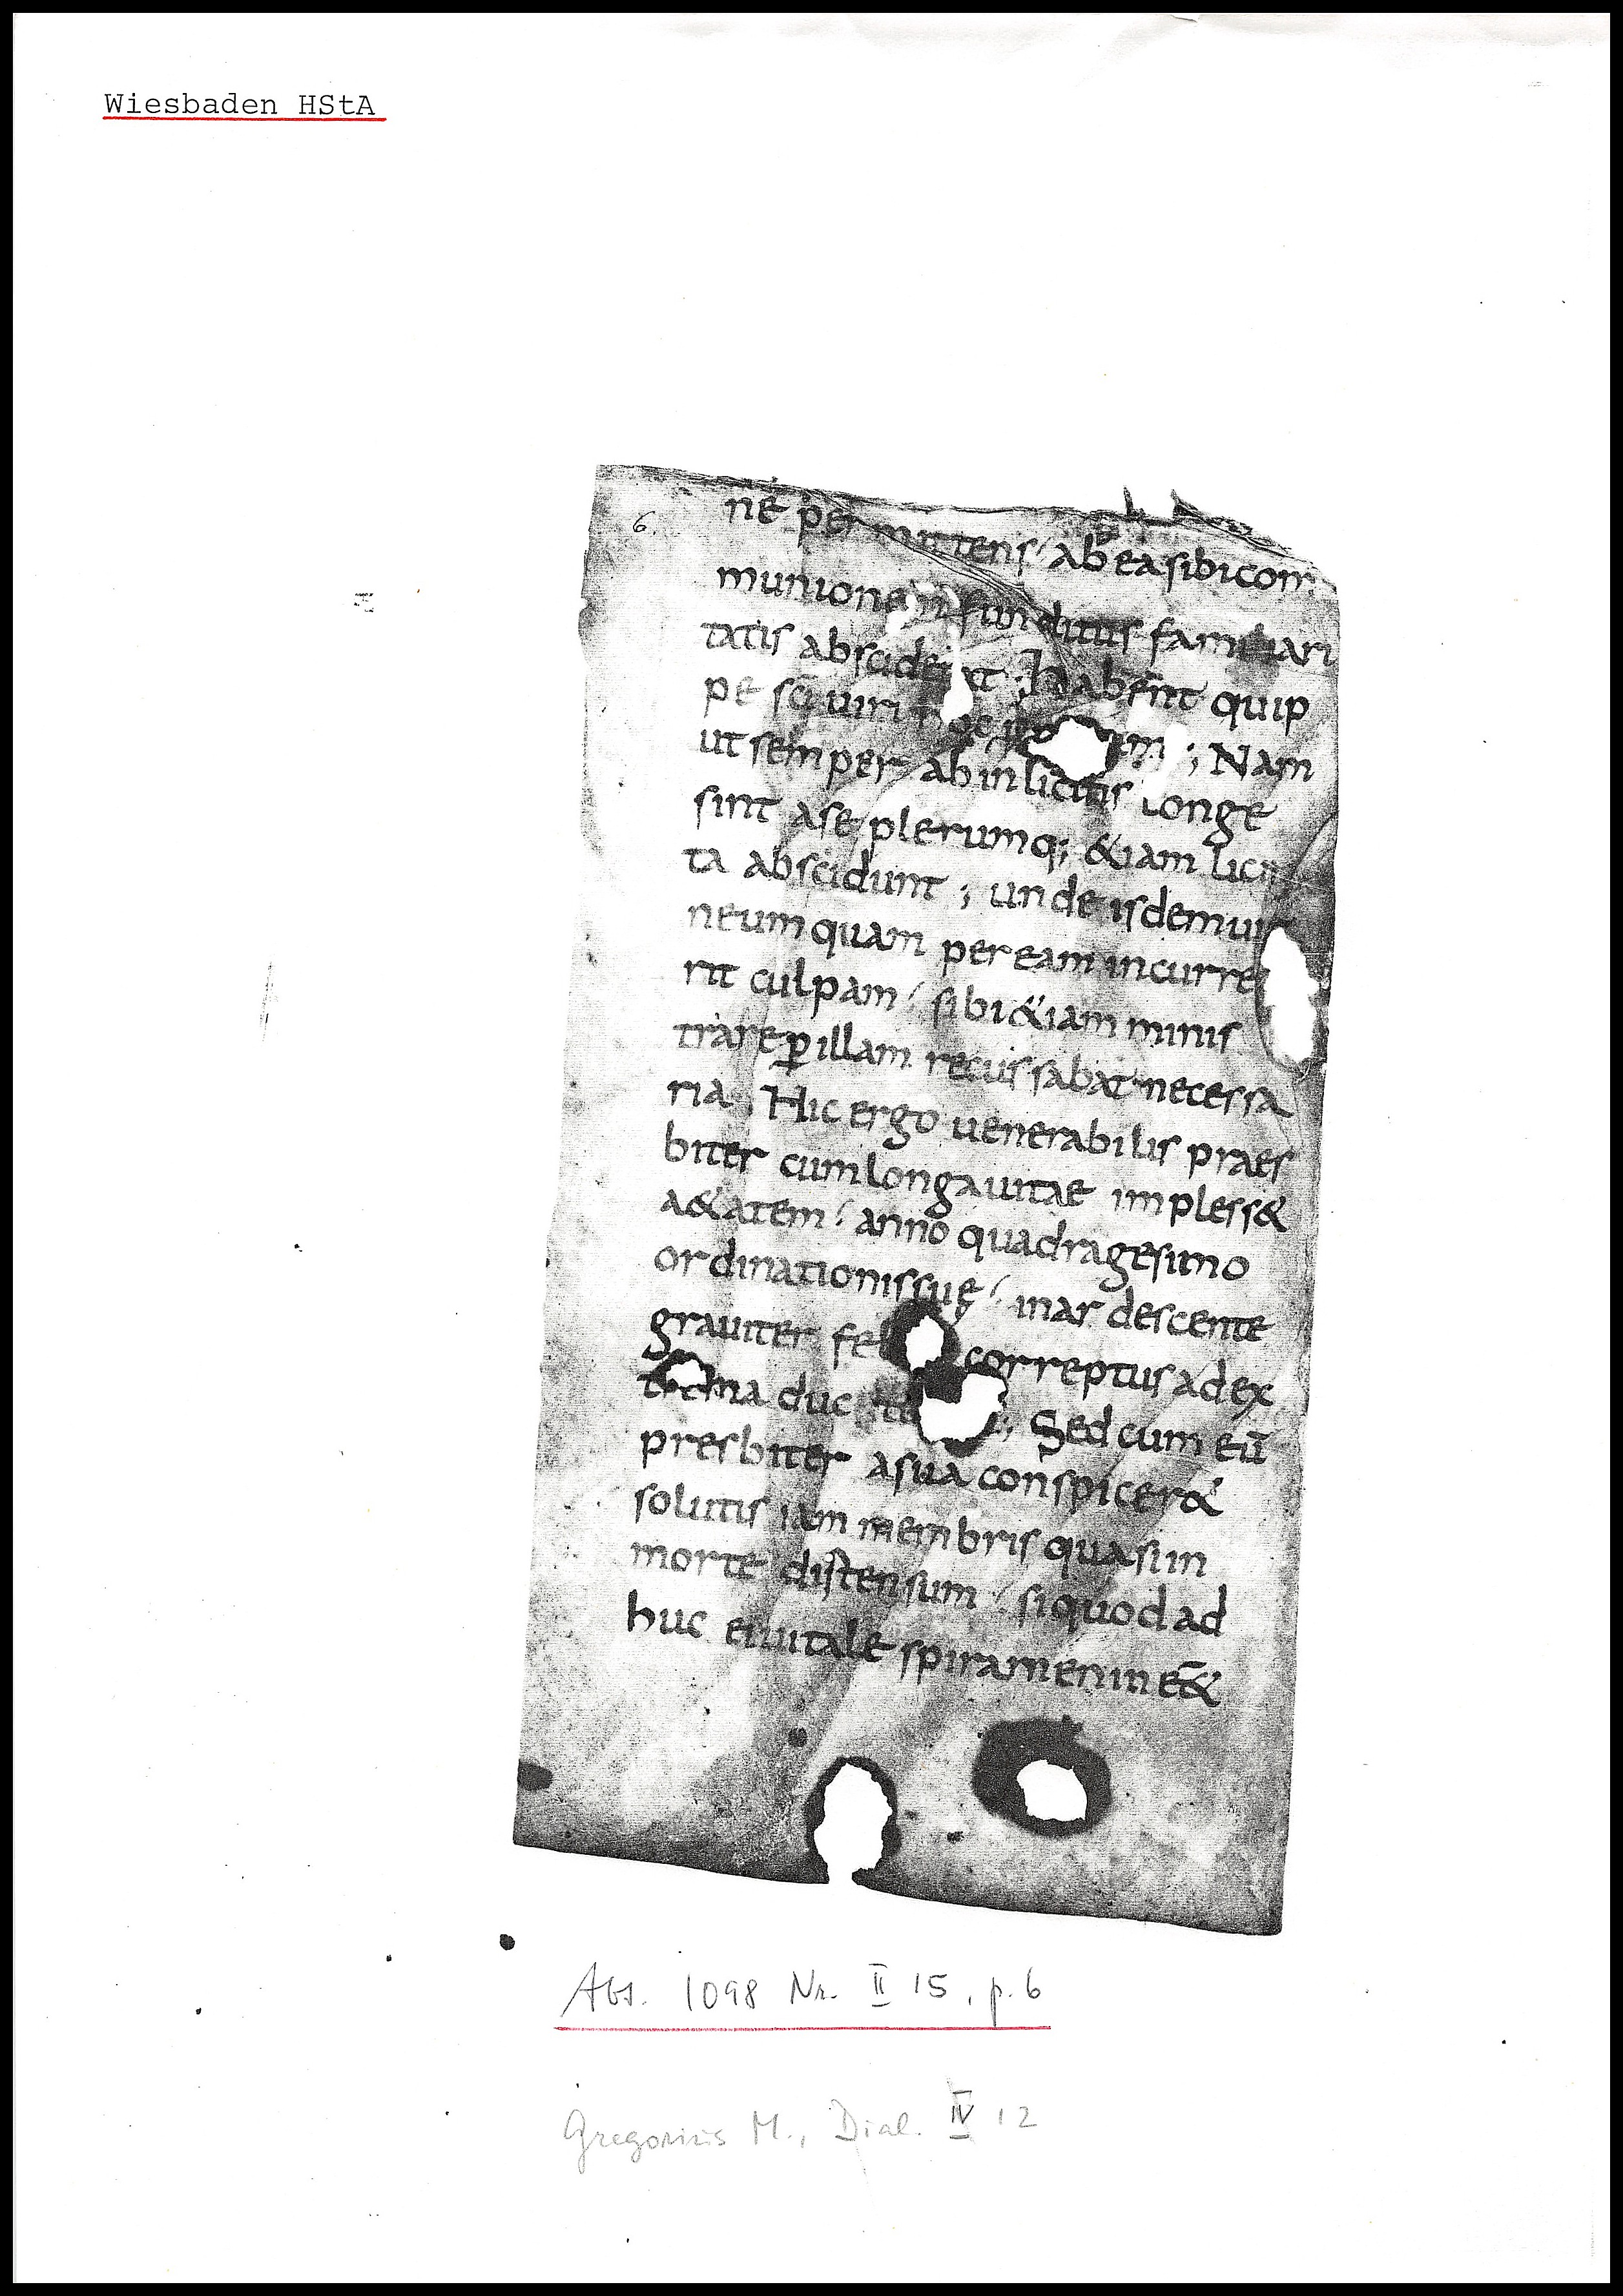 Wiesbaden HStA
6.
ne permittens ab ea sibi com
munionem funditus familiari
tatis absciderat Habent quip
pe sci uiri hoc ; Nam
ut semper ab inlicitis longe
sint a se plerumq; &iam lici
ta abscidunt ; unde isdem uir
ne umquam per eam incurre
rit culpam sibi &iam minis
trare ꝑ illam recussabat necessa
ria , Hic ergo uenerabilis praes
biter cum longa uitae impless&
a&atem anno quadragesimo
ordinationis suę inardescente
grauiter correptus ad ex
ma duc ; Sed cum eū
presbiter a sua conspicer&
solutis iam membris quasi in
morte distensum si quod ad
huc ei uitale spiramen in e&
Abt. 1098 Nr. II 15, p. 6
Gregorius M., Dial. IV 12